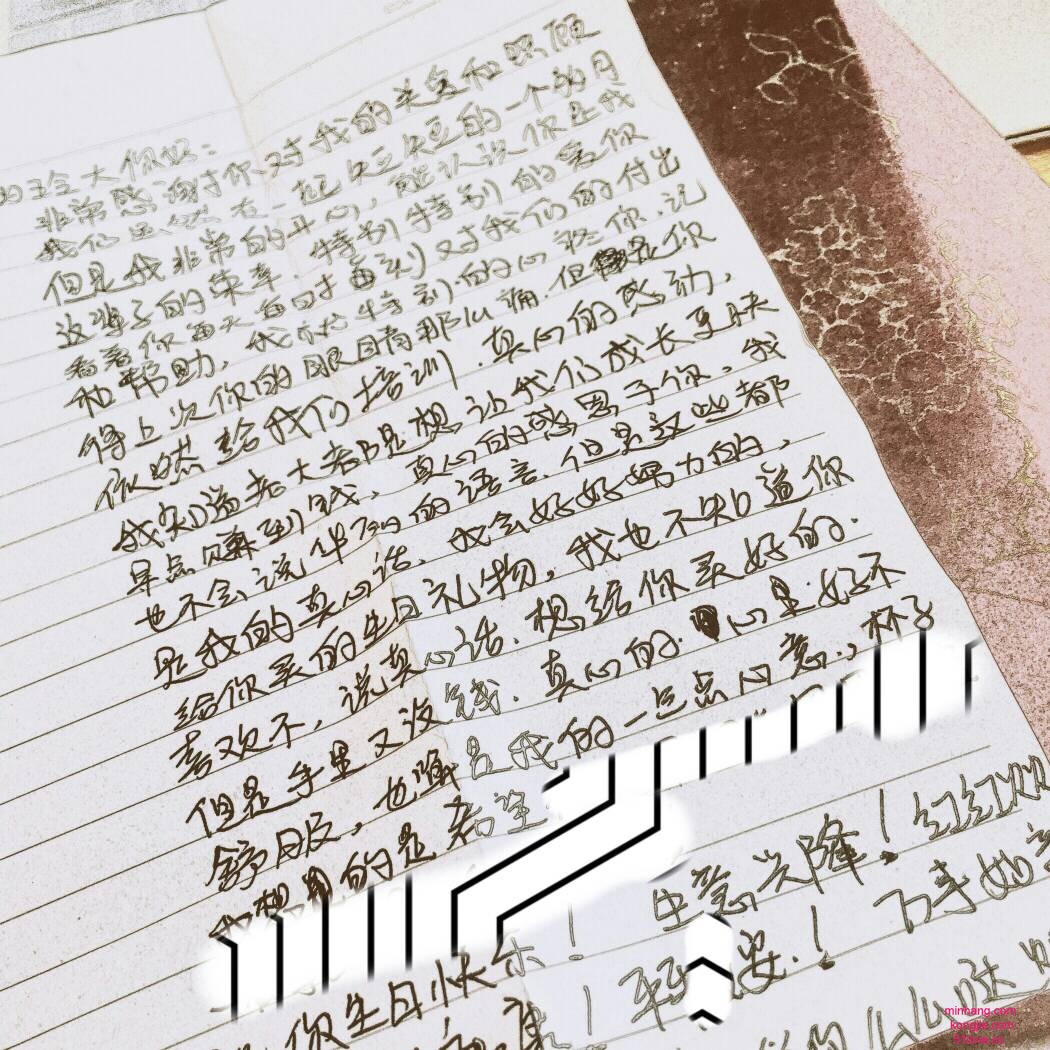 的玲大你好：
非常感谢对你对我的关爱和照顾
我们虽然在一起短短的一个多月
但是我非常的开心，能认识你是我
这辈子的荣幸．特别特别的爱你
看着你每天 又对我们的付出
和帮助，我 特别的心疼你．记
得上次你的眼目有那么痛．但是你
依然给我们培训．真心的感动，
我知道老大都是想让我们成长更快
早点赚到钱，真心的感恩于你。我
也不会说华 的语言．但是这些都
是我的真心话、我会好好努力的，
给你买的生日礼物，我也不知道你
喜欢不，说真心话．想给你买好的．
但是手里又没钱．真心的． 心里好不
舒服，也 是我的一点点心意．，杯子
我想 的是希望
你生日快乐！ 生意兴隆！红红
！ 平 安．！ 万事如意
minhang.com